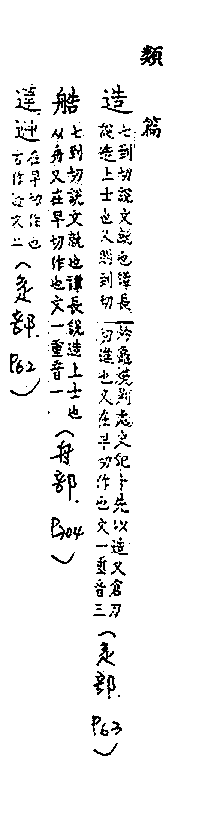 類篇
造 七到切說文就也譚長
說造上士也又則到切
灼龜燒荊志史紀卜先以造又倉刀
切進也又在早切作也文一重音三（辵部．P63）
艁 七到切說文就也譚長說造上士也
从舟又在早切作也文一重音一（舟部．P304）
在早切作也
古作文二（辵部．P62）